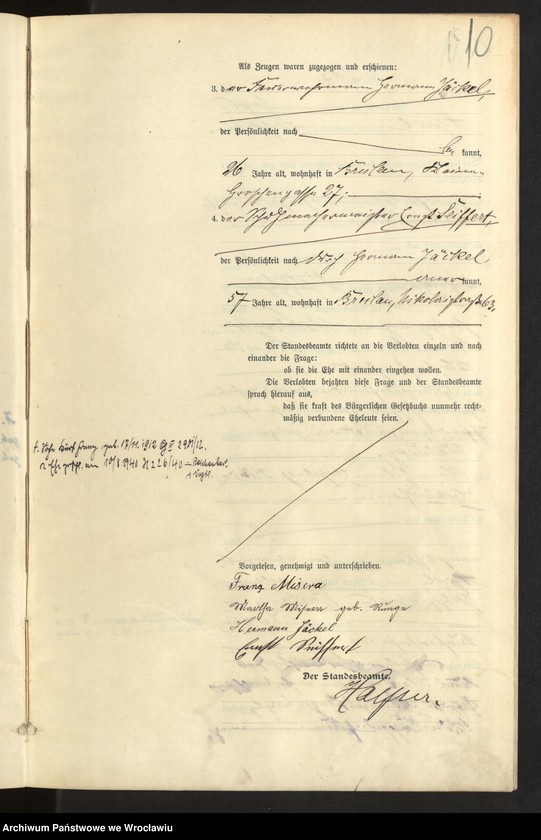 10
Als Zeugen waren zugezogen und erschienen:
3. der Feuerwehrmann Hermann Jäckel,
der Persönlichkeit nach
be kannt,
26 Jahre alt, wohnhaft in Breslau, Kleine-
Groschengasse 27;
4. der Schuhmachermeister Ernst Seiffert,
der Persönlichkeit nach durch Hermann Jäckel
aner kannt,
57 Jahre alt, wohnhaft in Breslau, Nikolaistraße 63.
Der Standesbeamte richtete an die Verlobten einzeln und nach
einander die Frage:
ob sie die Ehe mit einander eingehen wollen.
Die Verlobten bejahten diese Frage und der Standesbeamte
sprach hierauf aus,
daß sie kraft des Bürgerlichen Gesetzbuchs nunmehr recht-
mäßig verbundene Eheleute seien.
1. Sohn Franz geb. 1912
2. Ehe am 1940 226/40
Vorgelesen, genehmigt und unterschrieben.
Franz Misera
Martha Misera geb. Runge
Hermann Jäckel
Ernst Seiffert
Der Standesbeamte.
Archiwum Państwowe we Wrocławiu